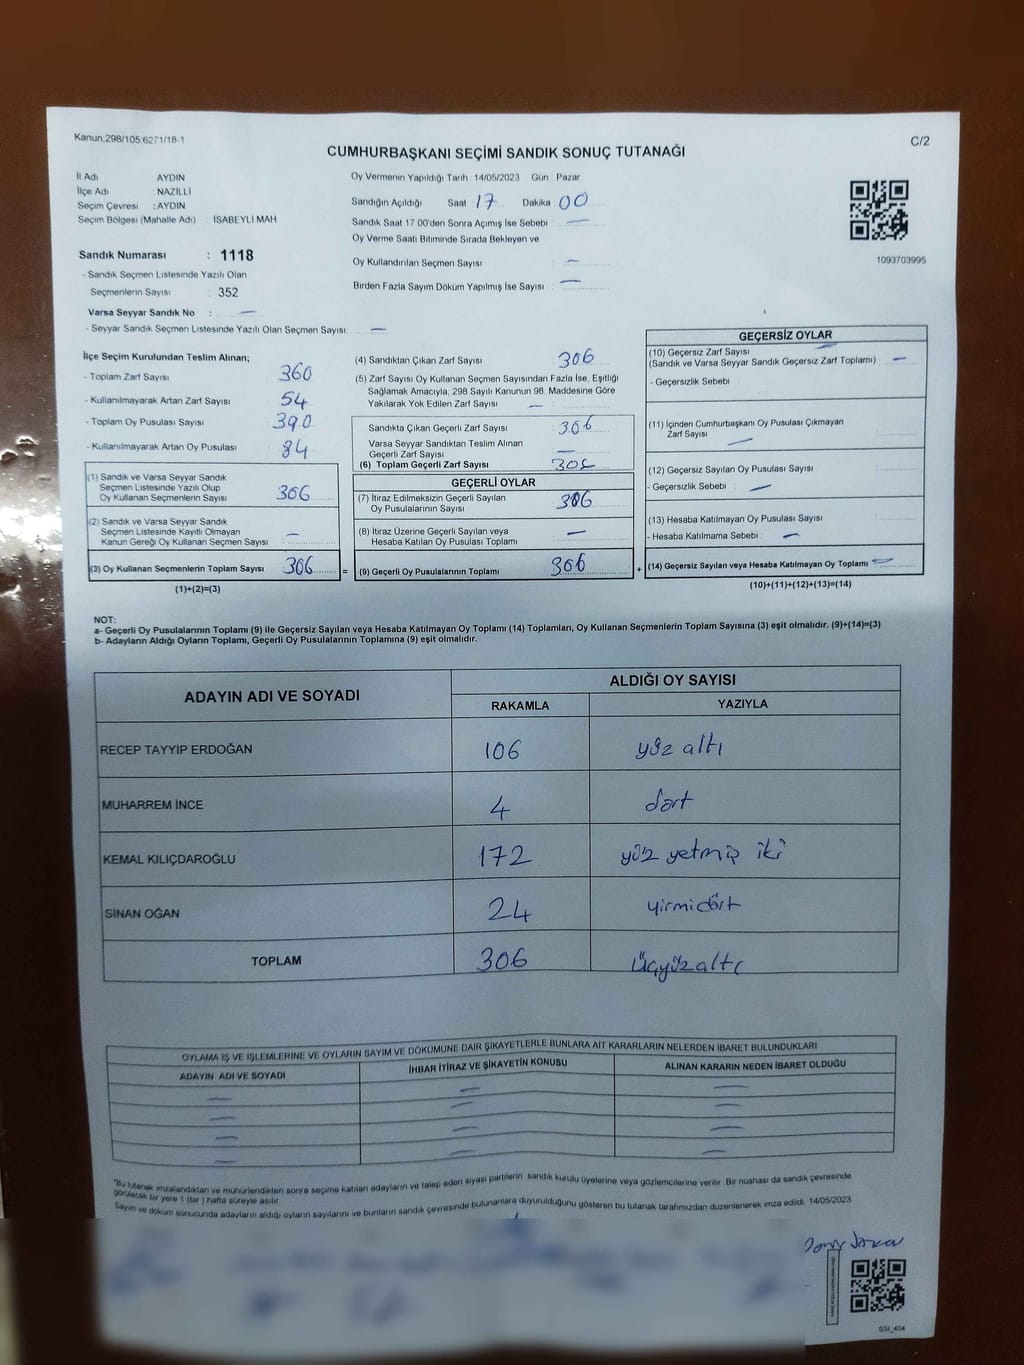 Kanun:298/105,6271/18-1
C/2
CUMHURBAŞKANI SEÇİMİ SANDIK SONUÇ TUTANAĞI
İl Adı AYDIN
İlçe Adı NAZİLLİ
Seçim Çevresi : AYDIN
Seçim Bölgesi (Mahalle Adı) : İSABEYLİ MAH
Sandık Numarası : 1118
- Sandık Seçmen Listesinde Yazılı Olan
Seçmenlerin Sayısı : 352
Varsa Seyyar Sandık No : —
- Seyyar Sandık Seçmen Listesinde Yazılı Olan Seçmen Sayısı: —
Oy Vermenin Yapıldığı Tarih 14/05/2023 Gün : Pazar
Sandığın Açıldığı Saat 17 Dakika : 00
Sandık Saat 17 00'den Sonra Açımış İse Sebebi : —
Oy Verme Saati Bitiminde Sırada Bekleyen ve
Oy Kullandırılan Seçmen Sayısı : —
Birden Fazla Sayım Döküm Yapılmış İse Sayısı : —
1093703995
İlçe Seçim Kurulundan Teslim Alınan;
- Toplam Zarf Sayısı : 360
- Kullanılmayarak Artan Zarf Sayısı : 54
- Toplam Oy Pusulası Sayısı : 390
- Kullanılmayarak Artan Oy Pusulası : 84
(1) Sandık ve Varsa Seyyar Sandık
Seçmen Listesinde Yazılı Olup
Oy Kullanan Seçmenlerin Sayısı : 306
(2) Sandık ve Varsa Seyyar Sandık
Seçmen Listesinde Kayıtlı Olmayan
Kanun Gereği Oy Kullanan Seçmen Sayısı : —
(3) Oy Kullanan Seçmenlerin Toplam Sayısı : 306 =
(1)+(2)=(3)
(4) Sandıktan Çıkan Zarf Sayısı : 306
(5) Zarf Sayısı Oy Kullanan Seçmen Sayısından Fazla İse, Eşitliği
Sağlamak Amacıyla, 298 Sayılı Kanunun 98. Maddesine Göre
Yakılarak Yok Edilen Zarf Sayısı : —
Sandıkta Çıkan Geçerli Zarf Sayısı : 306
Varsa Seyyar Sandıktan Teslim Alınan
Geçerli Zarf Sayısı : —
(6) Toplam Geçerli Zarf Sayısı : 306
GEÇERLİ OYLAR
(7) İtiraz Edilmeksizin Geçerli Sayılan
Oy Pusulalarının Sayısı : 306
(8) İtiraz Üzerine Geçerli Sayılan veya
Hesaba Katılan Oy Pusulası Toplamı : —
(9) Geçerli Oy Pusulalarının Toplamı : 306 +
GEÇERSİZ OYLAR
(10) Geçersiz Zarf Sayısı
(Sandık ve Varsa Seyyar Sandık Geçersiz Zarf Toplamı) : —
- Geçersizlik Sebebi :
(11) İçinden Cumhurbaşkanı Oy Pusulası Çıkmayan
Zarf Sayısı —
(12) Geçersiz Sayılan Oy Pusulası Sayısı
- Geçersizlik Sebebi : —
(13) Hesaba Katılmayan Oy Pusulası Sayısı
- Hesaba Katılmama Sebebi : —
(14) Geçersiz Sayılan veya Hesaba Katılmayan Oy Toplamı : —
(10)+(11)+(12)+(13)=(14)
NOT:
a- Geçerli Oy Pusulalarının Toplamı (9) ile Geçersiz Sayılan veya Hesaba Katılmayan Oy Toplamı (14) Toplamları, Oy Kullanan Seçmenlerin Toplam Sayısına (3) eşit olmalıdır. (9)+(14)=(3)
b- Adayların Aldığı Oyların Toplamı, Geçerli Oy Pusulalarının Toplamına (9) eşit olmalıdır.
ADAYIN ADI VE SOYADI
ALDIĞI OY SAYISI
RAKAMLA YAZIYLA
RECEP TAYYİP ERDOĞAN 106 yüz altı
MUHARREM İNCE 4 dört
KEMAL KILIÇDAROĞLU 172 yüz yetmiş iki
SİNAN OĞAN 24 yirmidört
TOPLAM 306 üçyüzaltı
OYLAMA İŞ VE İŞLEMLERİNE VE OYLARIN SAYIM VE DÖKÜMÜNE DAİR ŞİKAYETLERLE BUNLARA AİT KARARLARIN NELERDEN İBARET BULUNDUKLARI
ADAYIN ADI VE SOYADI İHBAR İTİRAZ VE ŞİKAYETİN KONUSU ALINAN KARARIN NEDEN İBARET OLDUĞU
— — —
— — —
— — —
— — —
"Bu tutanak imzalandıktan ve mühürlendikten sonra seçime katılan adayların ve talep eden siyasi partilerin sandık kurulu üyelerine veya gözlemcilerine verilir. Bir nüshası da sandık çevresinde
görülecek bir yere 1 (bir) hafta süreyle asılır.
Sayım ve döküm sonucunda adayların aldığı oyların sayılarını ve bunların sandık çevresinde bulunanlara duyurulduğunu gösteren bu tutanak tarafımızdan düzenlenerek imza edildi. 14/05/2023